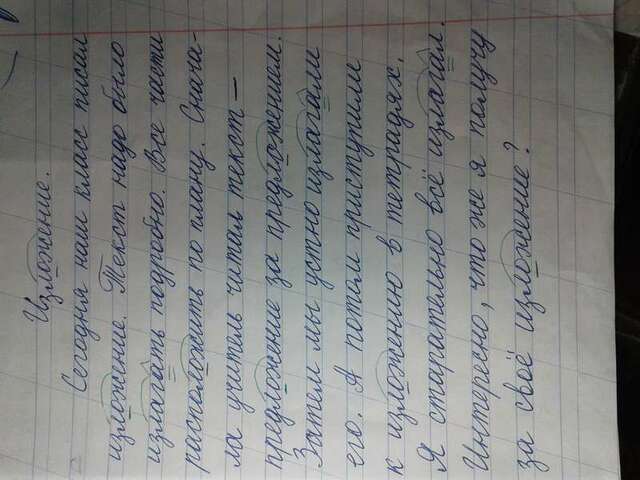 Изложение.
Сегодня наш класс писал
изложение. Текст надо было
излагать подробно. Все части
расположить по плану. Снача-
ла учитель читал текст —
предложение за предложением.
Затем мы устно излагали
его. А потом приступили
к изложению в тетрадях.
Я старательно всё излагал.
Интересно, что же я получу
за своё изложение?